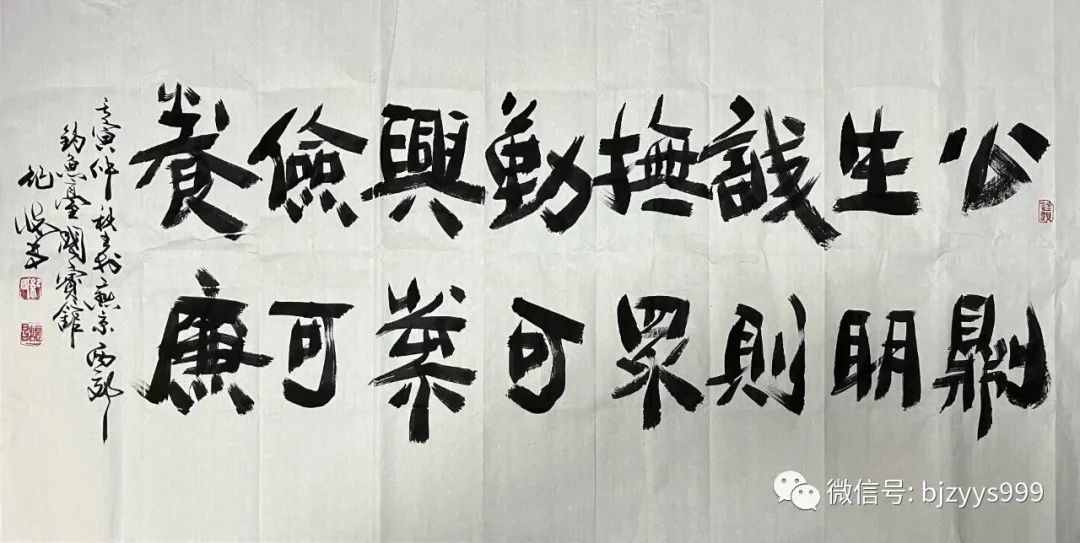 公則
生明
誠則
撫眾
勤可
興業
儉可
養廉
壬寅仲秋書於燕京西郊
釣魚臺國賓館
紀
微信号: bjzyys999